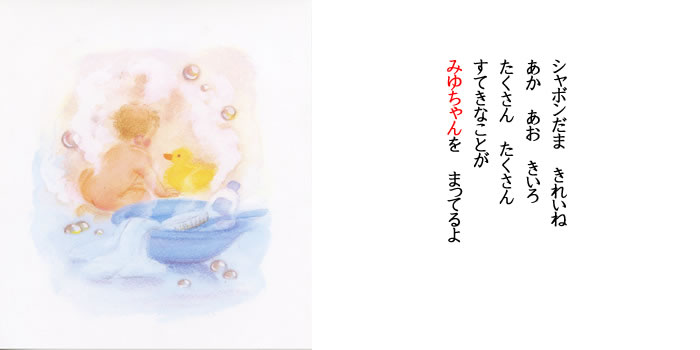 シャボンだま　きれいね
あか　あお　きいろ
たくさん　たくさん
すてきなことが
みゆちゃんを　まってるよ